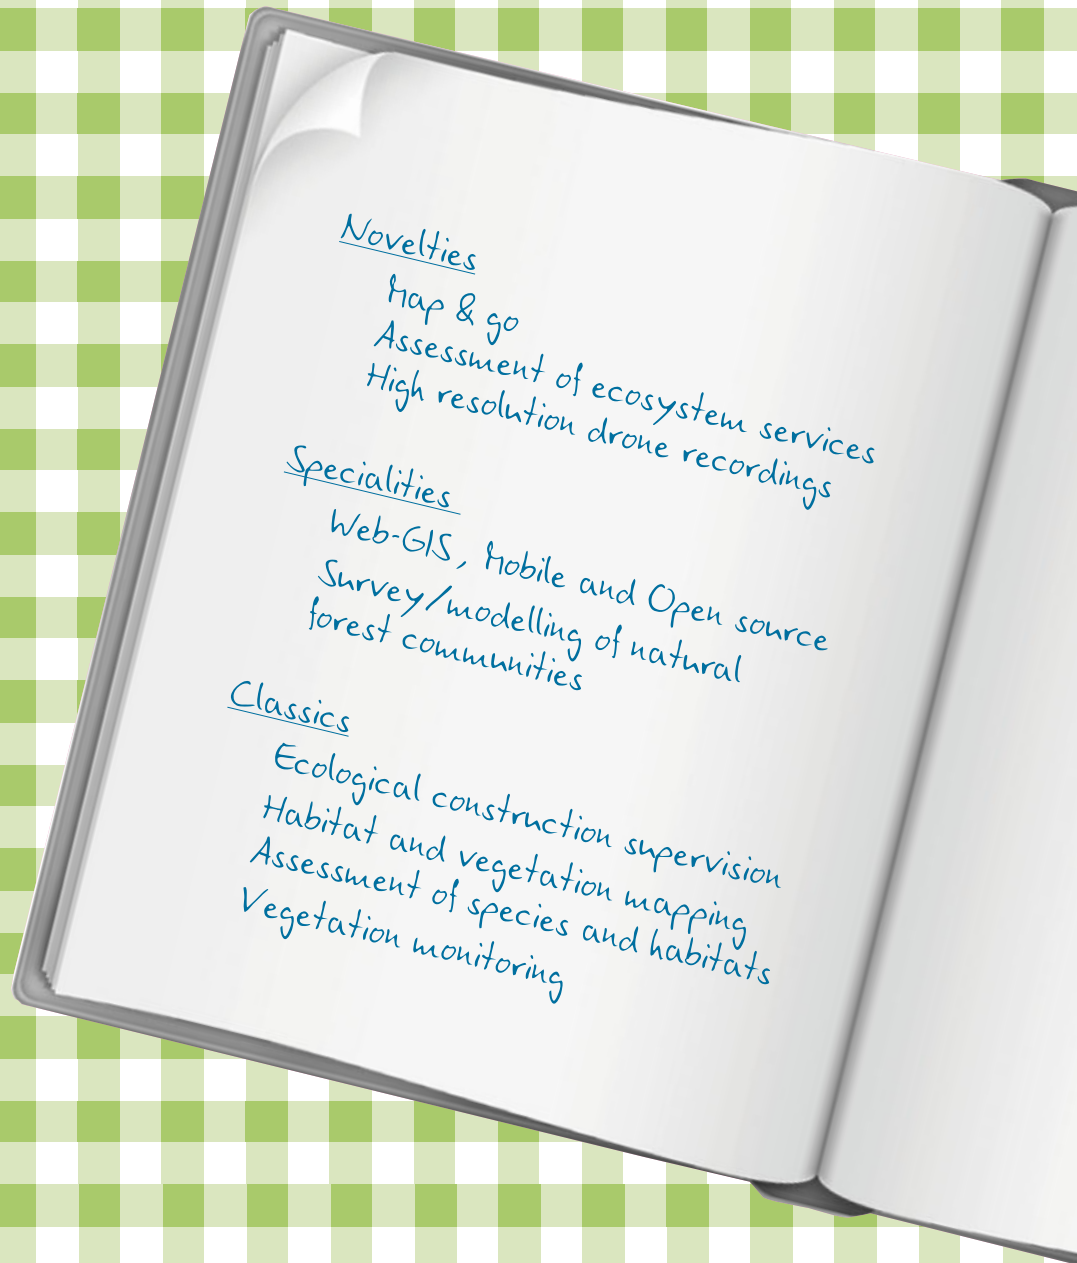 Novelties
Map & go
Assessment of ecosystem services
High resolution drone recordings
Specialities
Web-GIS, Mobile and Open source
Survey/modelling of natural
forest communities
Classics
Ecological construction supervision
Habitat and vegetation mapping
Assessment of species and habitats
Vegetation monitoring